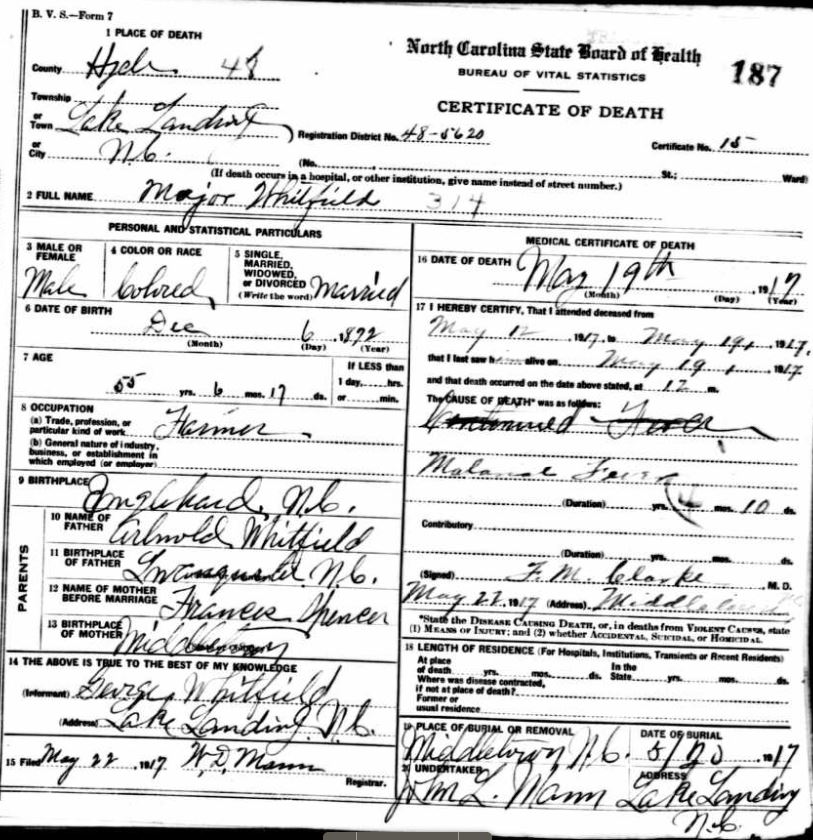 B. V. S.—Form 7
1 PLACE OF DEATH
County Hyde 48
Township
or
Town Lake Landing
or
City N.C.
North Carolina State Board of Health
BUREAU OF VITAL STATISTICS
187
CERTIFICATE OF DEATH
Registration District No. 48-5620
Certificate No. 15
(No. St.; Ward)
(If death occurs in a hospital, or other institution, give name instead of street number.)
2 FULL NAME Major Whitfield 314
PERSONAL AND STATISTICAL PARTICULARS
3 MALE OR FEMALE
Male
4 COLOR OR RACE
Colored
5 SINGLE, MARRIED, WIDOWED, or DIVORCED
(Write the word) Married
6 DATE OF BIRTH
Dec 6, 1872
(Month) (Day) (Year)
7 AGE
55 yrs. 6 mos. 17 ds.
If LESS than
1 day, hrs.
or min.
8 OCCUPATION
(a) Trade, profession, or
particular kind of work. Farmer
(b) General nature of industry,
business, or establishment in
which employed (or employer)
9 BIRTHPLACE Englehard, N.C.
PARENTS
10 NAME OF FATHER Whitfield
11 BIRTHPLACE OF FATHER N.C.
12 NAME OF MOTHER BEFORE MARRIAGE Frances Spencer
13 BIRTHPLACE OF MOTHER Middletown
14 THE ABOVE IS TRUE TO THE BEST OF MY KNOWLEDGE
(Informant) George Whitfield
(Address) Lake Landing N.C.
15 Filed May 22, 1917 W. D. Mann
Registrar.
MEDICAL CERTIFICATE OF DEATH
16 DATE OF DEATH May 19th, 1917
(Month) (Day) (Year)
17 I HEREBY CERTIFY, That I attended deceased from
May 12 1917, to May 19, 1917,
that I last saw him alive on May 19, 1917
and that death occurred on the date above stated, at 12 m.
The CAUSE OF DEATH* was as follows:
Continued Fever
Malarial Fever
(Duration) yrs. mos. 10 ds.
Contributory
(Duration) yrs. mos. ds.
(Signed) F. M. Clarke M. D.
May 22, 1917 (Address) Middletown
*State the DISEASE CAUSING DEATH, or, in deaths from VIOLENT CAUSES, state
(1) MEANS OF INJURY; and (2) whether ACCIDENTAL, SUICIDAL, or HOMICIDAL.
18 LENGTH OF RESIDENCE (For Hospitals, Institutions, Transients or Recent Residents)
At place of death yrs. mos. ds. In the State yrs. mos. ds.
Where was disease contracted,
if not at place of death?
Former or
usual residence
19 PLACE OF BURIAL OR REMOVAL
Middletown N.C.
DATE OF BURIAL
5/20, 1917
UNDERTAKER
John L. Mann
ADDRESS
Lake Landing
N.C.